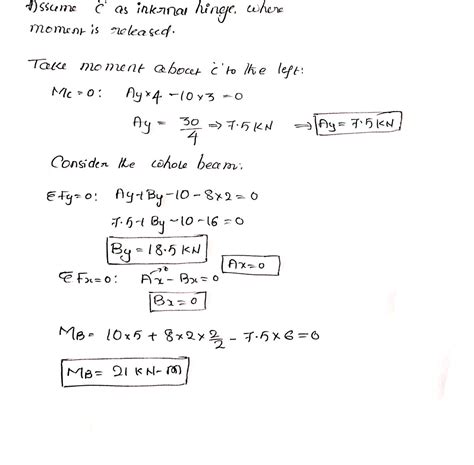 Assume 'C' as internal hinge, where
moment is released.
Take moment about 'C' to the left:
Mc=0: Ay×4 -10×3 =0
Ay = 30/4 ⇒ 7.5 KN ⇒ Ay = 7.5 KN
Consider the whole beam:
ΣFy=0: Ay+By-10-8×2=0
7.5+By-10-16=0
By=18.5 KN
Ax=0
ΣFx=0: Ax→0 - Bx=0
Bx=0
MB= 10×5 + 8×2×2/2 - 7.5×6=0
MB= 21 KN-m